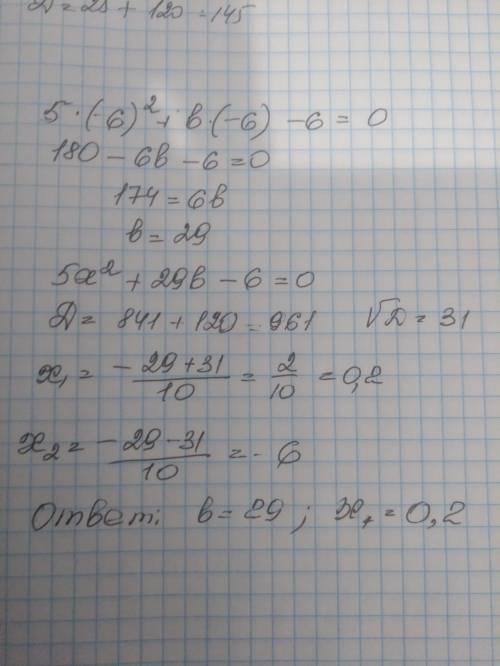 D = 25 + 120 = 145
5·(-6)² + b·(-6) - 6 = 0
180 - 6b - 6 = 0
174 = 6b
b = 29
5x² + 29b - 6 = 0
D = 841 + 120 = 961 √D = 31
x₁ = (-29+31)/10 = 2/10 = 0,2
x₂ = (-29-31)/10 = - 6
Ответ: b = 29 ; x₁ = 0,2